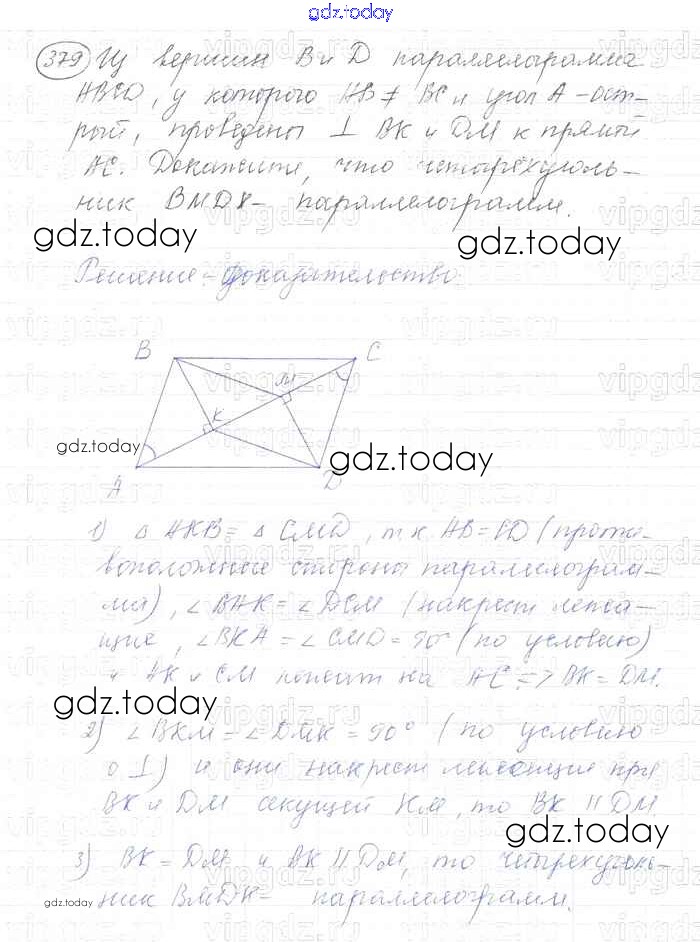 gdz.today
379 Из вершин В и D параллелограмма
ABCD, у которого AB ≠ BC и угол A – ост-
рый, проведены ⊥ BK и DM к прямой
AC. Докажите, что четырёхуголь-
ник BMDK – параллелограмм.
gdz.today gdz.today
Решение – доказательство
B C
M
K
gdz.today
gdz.today
A D
1) △ AKB = △ CMD, т.к. AB = CD (проти-
воположные стороны параллелограм-
ма), ∠ BAK = ∠ DCM (накрест лежа-
щие, ∠ BKA = ∠ CMD = 90° (по условию)
и AK и CM лежит на AC => BK = DM.
gdz.today
2) ∠ BKM = ∠ DMK = 90° (по условию
о ⊥) и они накрест лежащие при
BK и DM секущей KM, то BK || DM
gdz.today
3) BK = DM и BK || DM, то четырехуголь-
gdz.today
ник BMDK = параллелограмм.